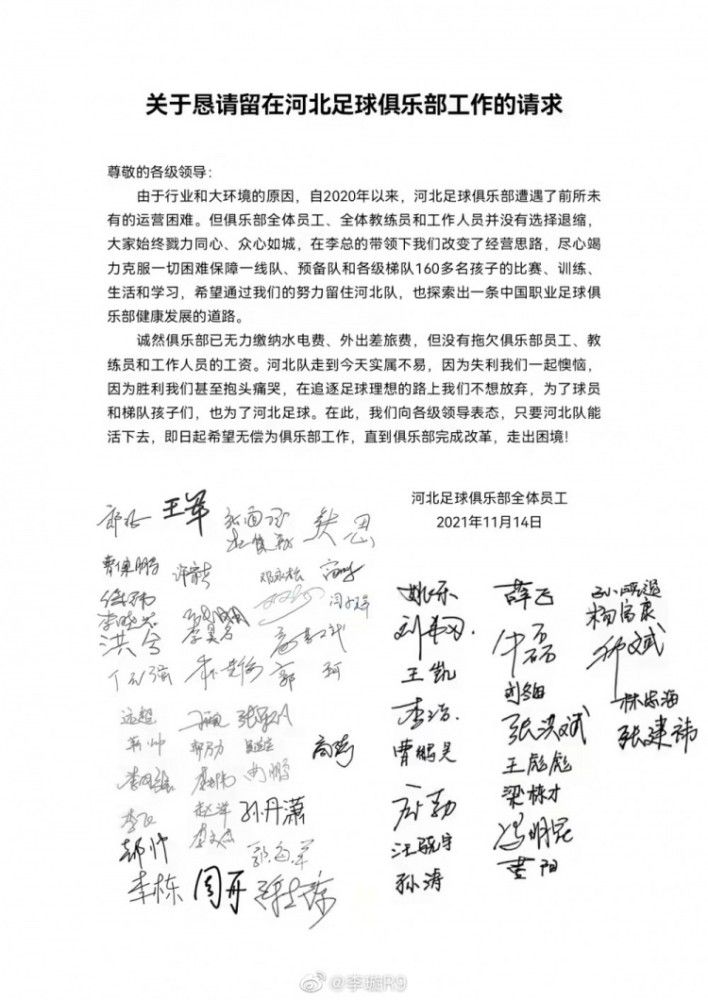 关于恳请留在河北足球俱乐部工作的请求
尊敬的各级领导：
由于行业和大环境的原因，自2020年以来，河北足球俱乐部遭遇了前所未
有的运营困难。但俱乐部全体员工、全体教练员和工作人员并没有选择退缩，
大家始终戮力同心、众心如城，在李总的带领下我们改变了经营思路，尽心竭
力克服一切困难保障一线队、预备队和各级梯队160多名孩子的比赛、训练、
生活和学习，希望通过我们的努力留住河北队，也探索出一条中国职业足球俱
乐部健康发展的道路。
诚然俱乐部已无力缴纳水电费、外出差旅费，但没有拖欠俱乐部员工、教
练员和工作人员的工资。河北队走到今天实属不易，因为失利我们一起懊恼，
因为胜利我们甚至抱头痛哭，在追逐足球理想的路上我们不想放弃，为了球员
和梯队孩子们，也为了河北足球。在此，我们向各级领导表态，只要河北队能
活下去，即日起希望无偿为俱乐部工作，直到俱乐部完成改革，走出困境！
河北足球俱乐部全体员工
2021年11月14日
王军
曹保鹏
姚乐
薛飞
杨富康
李晓光
李昊名
洪兮
郭珂
王凯
仲斌
李浩
林宏海
远超
张洪斌
张建祎
靳帅
高嵩
曹鹏昊
王彪彪
尚鹏
梁栋才
赵洋
孙丹潇
冯明昆
郝帅
郭海军
汪骁宇
黄阳
李栋
周开
孙涛
@李璇R9